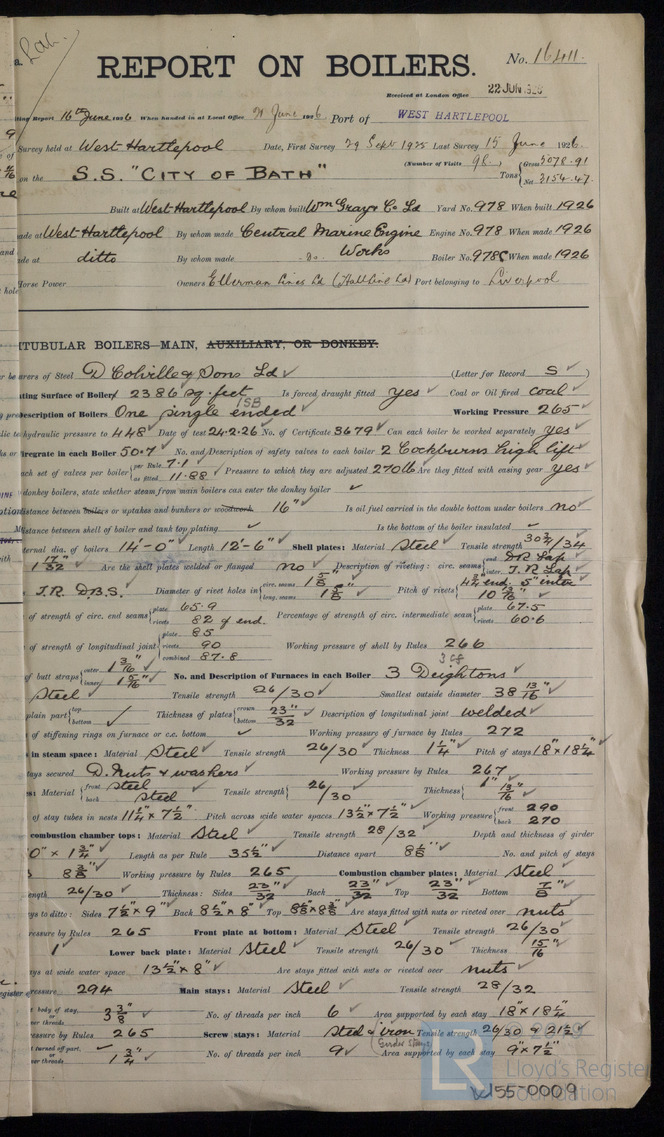 REPORT ON BOILERS.
No. 16411.
Received at London Office 22 JUN 1926
Report 16th June 1926 When handed in at Local Office 21 June 1926 Port of WEST HARTLEPOOL
Survey held at West Hartlepool Date, First Survey 29 Sept 1925 Last Survey 15 June 1926
on the S.S. "CITY OF BATH" (Number of Visits 98.) Tons {Gross 5078.91 Net 3154.47.
Built at West Hartlepool By whom built Wm Gray & Co Ld Yard No. 978 When built 1926
made at West Hartlepool By whom made Central Marine Engine Engine No. 978 When made 1926
made at ditto By whom made do. Works Boiler No. 978 When made 1926
Horse Power Owners Ellerman Lines Ld (Hall Line Ld) Port belonging to Liverpool
TUBULAR BOILERS—MAIN, AUXILIARY, OR DONKEY.
of Steel D Colville & Sons Ld (Letter for Record S)
Surface of Boiler 2386 sq. feet Is forced draught fitted yes Coal or Oil fired coal
Description of Boilers One single ended 1SB Working Pressure 265
hydraulic pressure to 448 Date of test 24.2.26 No. of Certificate 3679 Can each boiler be worked separately yes
Firegrate in each Boiler 50.7 No. and Description of safety valves to each boiler 2 Cockburns high lift
each set of valves per boiler {per Rule 7.1 as fitted 11.88 Pressure to which they are adjusted 270 lb Are they fitted with easing gear yes
donkey boilers, state whether steam from main boilers can enter the donkey boiler
distance between boilers or uptakes and bunkers or woodwork 16" Is oil fuel carried in the double bottom under boilers no
distance between shell of boiler and tank top plating Is the bottom of the boiler insulated
dia. of boilers 14'-0" Length 12'-6" Shell plates: Material Steel Tensile strength 30¾/34
1 17/32 Are the shell plates welded or flanged no Description of riveting: circ. seams {end DR Lap inter. T.R Lap
T.R. D.B.S. Diameter of rivet holes in {circ. seams 1⅝ long. seams 1⅝ Pitch of rivets {4½" end. 5" inter 10 13/16
of strength of circ. end seams {plate 65.9 rivets 82 of end Percentage of strength of circ. intermediate seam {plate 67.5 rivets 60.6
of strength of longitudinal joint {plate 85 rivets 90 combined 87.8 Working pressure of shell by Rules 266
of butt straps {outer 1 3/16" inner 1 5/16" No. and Description of Furnaces in each Boiler 3 Deightons
Steel Tensile strength 26/30 Smallest outside diameter 38 13/16
plain part {top bottom Thickness of plates {crown bottom 23"/32 Description of longitudinal joint welded
of stiffening rings on furnace or c.c. bottom Working pressure of furnace by Rules 272
in steam space: Material Steel Tensile strength 26/30 Thickness 1¼" Pitch of stays 18" x 18¼"
stays secured D. Nuts & washers Working pressure by Rules 267
Material {front steel back steel Tensile strength {26/30 Thickness {1" 13/16
of stay tubes in nests 11¼" x 7½" Pitch across wide water spaces 13½" x 7½" Working pressure {front 290 back 270
combustion chamber tops: Material Steel Tensile strength 28/32 Depth and thickness of girder
0" x 1¾" Length as per Rule 35½" Distance apart 8⅝" No. and pitch of stays
8⅜" Working pressure by Rules 265 Combustion chamber plates: Material Steel
26/30 Thickness: Sides 23"/32 Back 23"/32 Top 23"/32 Bottom 7/8"
to ditto: Sides 7½" x 9" Back 8½" x 8" Top 8⅝" x 8⅜" Are stays fitted with nuts or riveted over nuts
pressure by Rules 265 Front plate at bottom: Material Steel Tensile strength 26/30
1" Lower back plate: Material Steel Tensile strength 26/30 Thickness 15"/16
stays at wide water space 13½" x 8" Are stays fitted with nuts or riveted over nuts
Pressure 294 Main stays: Material Steel Tensile strength 28/32
body of stay, over threads 3⅜" No. of threads per inch 6 Area supported by each stay 18" x 18¼"
pressure by Rules 265 Screw stays: Material Steel & iron (Girder Stays) Tensile strength 26/30 & 21½
turned off part, over threads 1¾" No. of threads per inch 9 Area supported by each stay 9" x 7½"
LR
Lloyd's Register
Foundation
W155-0009